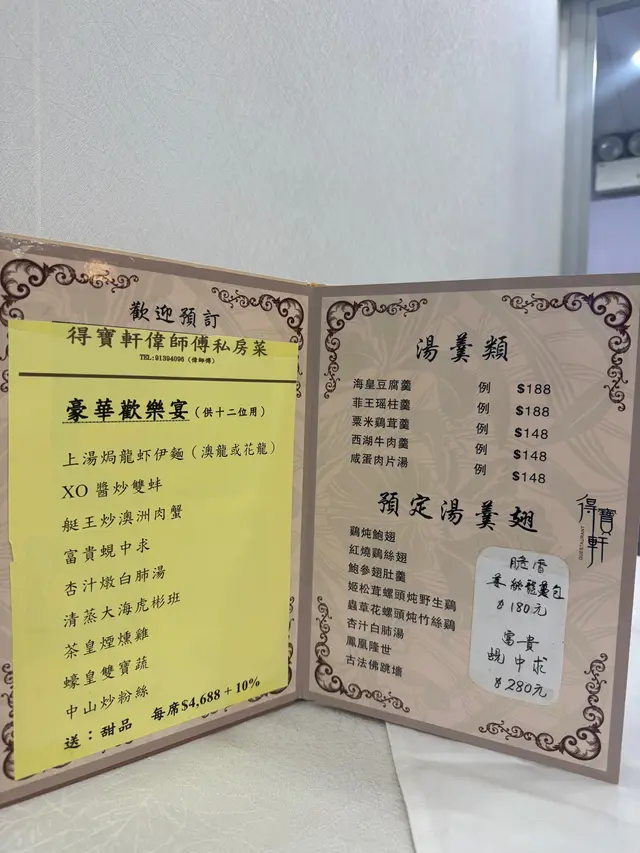 歡迎預訂
得寶軒偉師傅私房菜
TEL:91394096（偉師傅）
豪華歡樂宴（供十二位用）
上湯焗龍虾伊麵（澳龍或花龍）
XO 醬炒雙蚌
艇王炒澳洲肉蟹
富貴蜆中求
杏汁燉白肺湯
清蒸大海虎彬班
茶皇煙燻雞
蠔皇雙寶蔬
中山炒粉絲
送：甜品 每席$4,688＋10%
湯羹類
海皇豆腐羹 例 $188
菲王瑶柱羹 例 $188
粟米鷄茸羹 例 $148
西湖牛肉羹 例 $148
咸蛋肉片湯 例 $148
預定湯羹翅
鷄炖鮑翅
紅燒鷄絲翅
鮑參翅肚羹
姬松茸螺頭炖野生鷄
蟲草花螺頭炖竹絲鷄
杏汁白肺湯
鳳凰隆世
古法佛跳墻
得寶軒
RESTAURANT
$180元
富貴
蜆中求
$280元